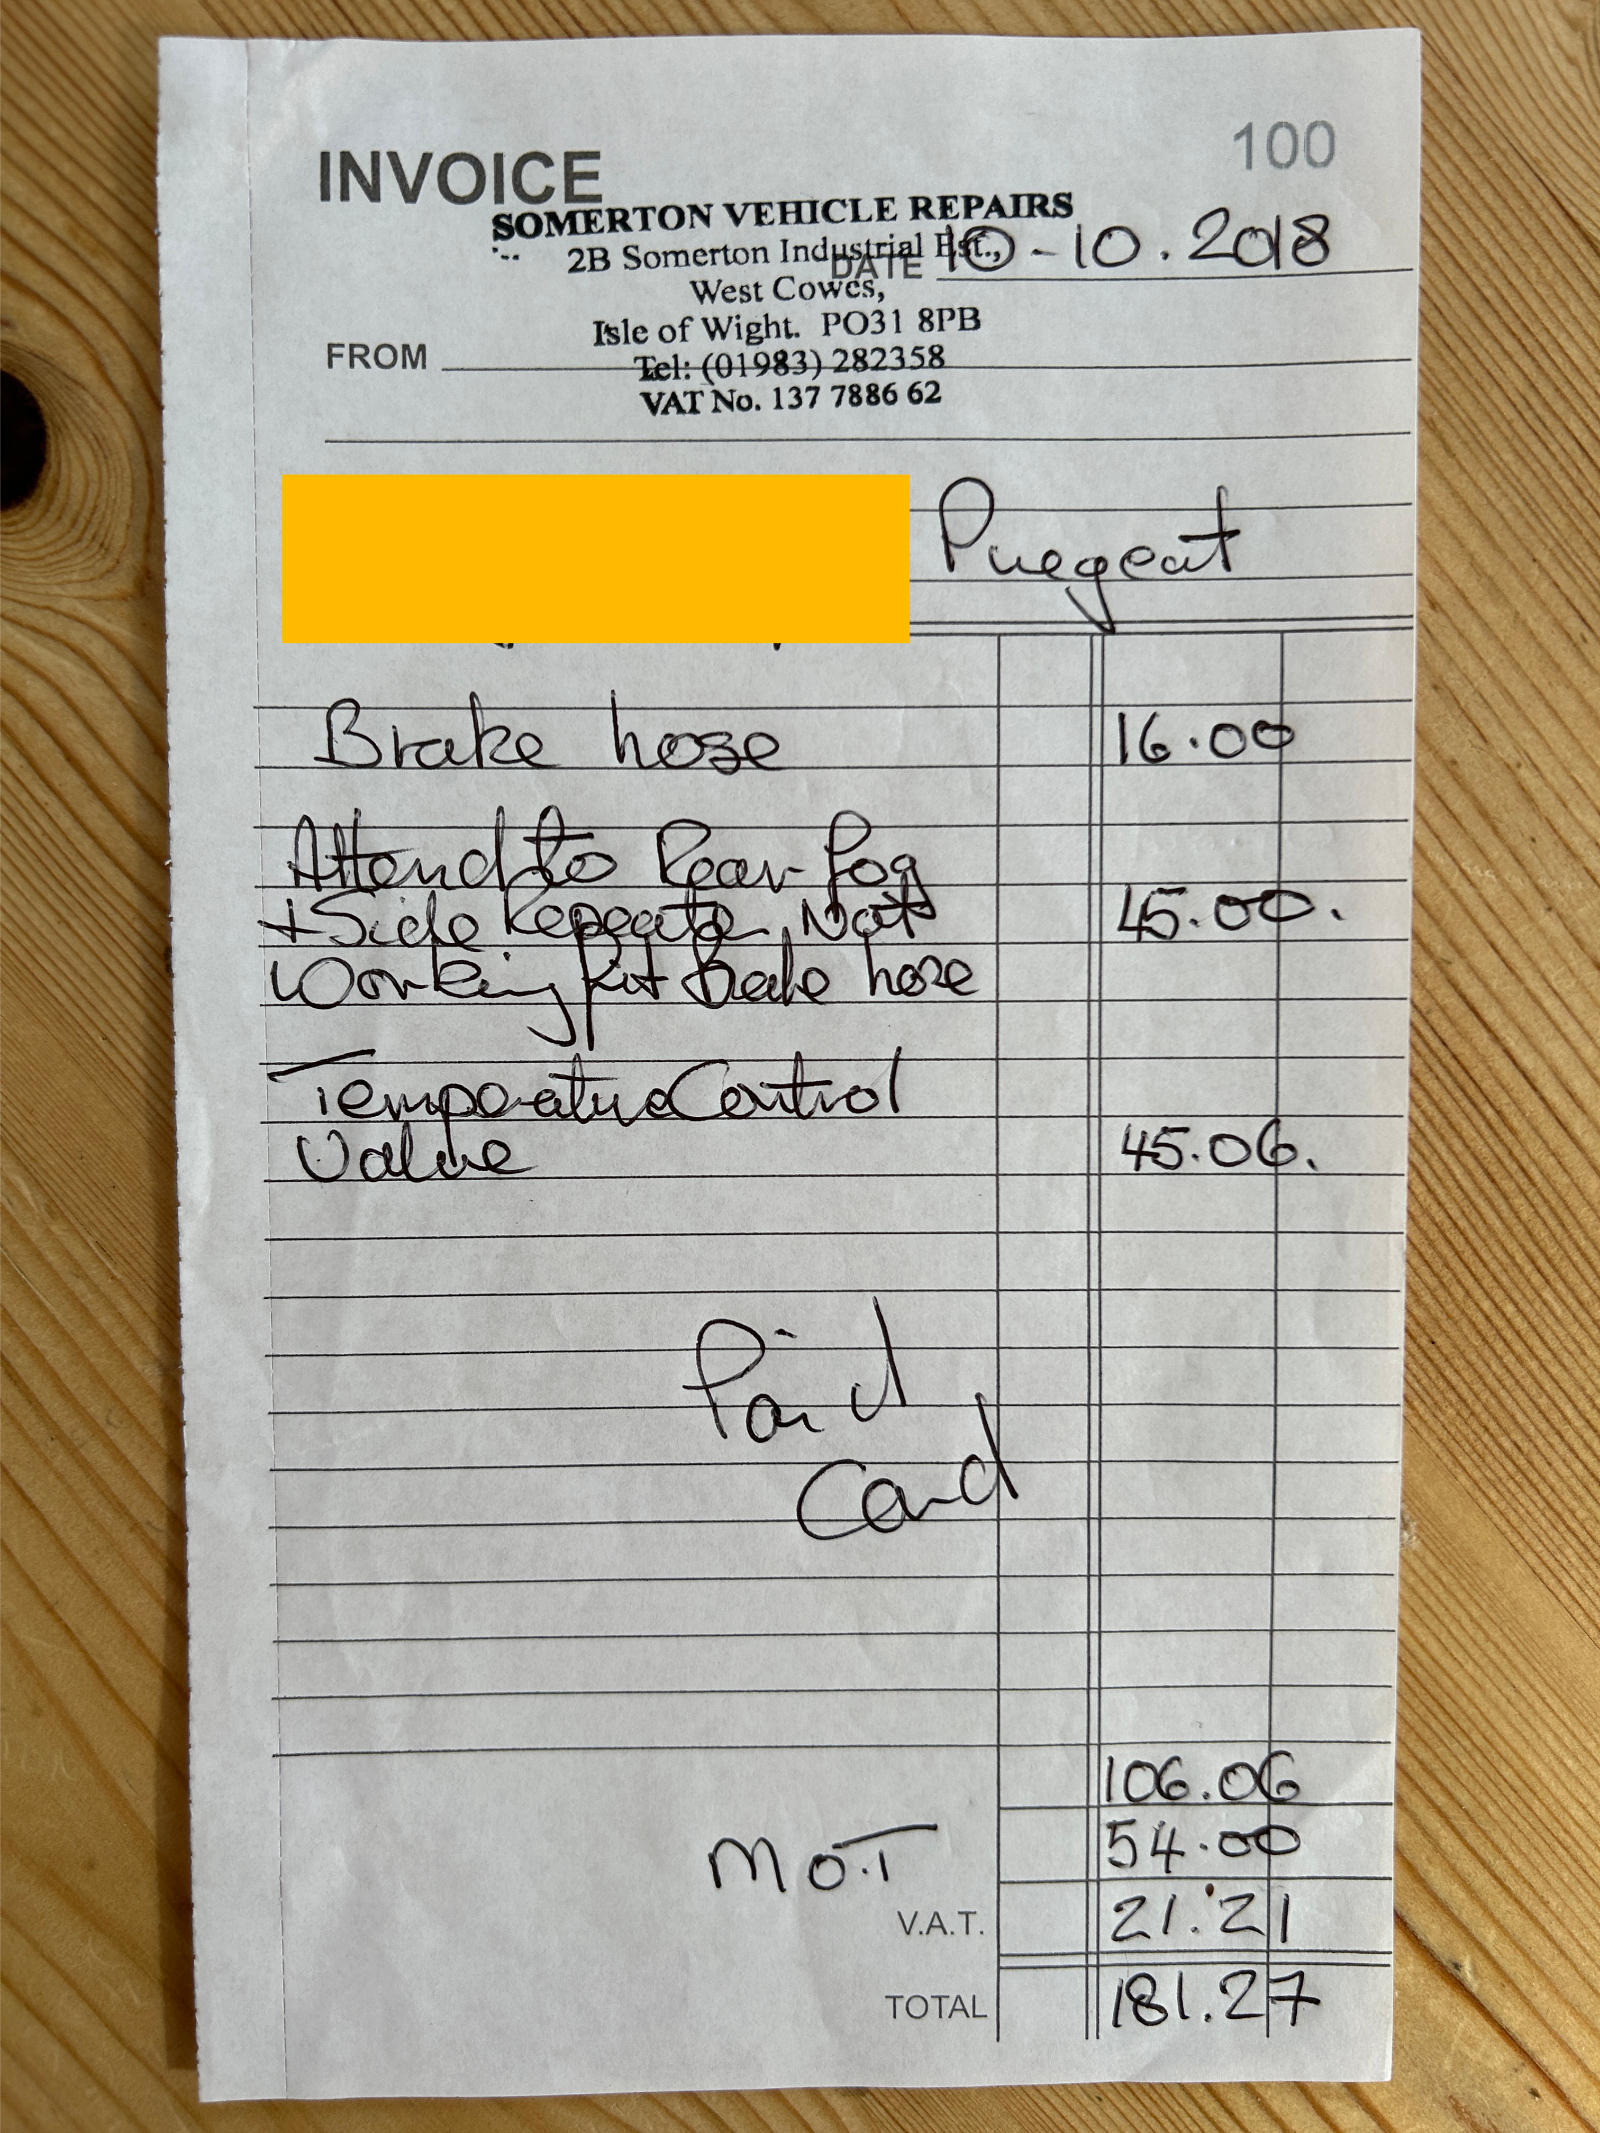 100
INVOICE
SOMERTON VEHICLE REPAIRS
2B Somerton Industrial Est.,
DATE 10-10.2018
West Cowes,
Isle of Wight. PO31 8PB
FROM
Tel: (01983) 282358
VAT No. 137 7886 62
Puegeat
Brake hose 16.00
Attend to Rear Fog
+ Side Repeater Not 45.00.
Working fit Brake hose
Temperature Control
Valve 45.06.
Paid
Card
106.06
M O.T 54.00
V.A.T. 21.21
TOTAL 181.27